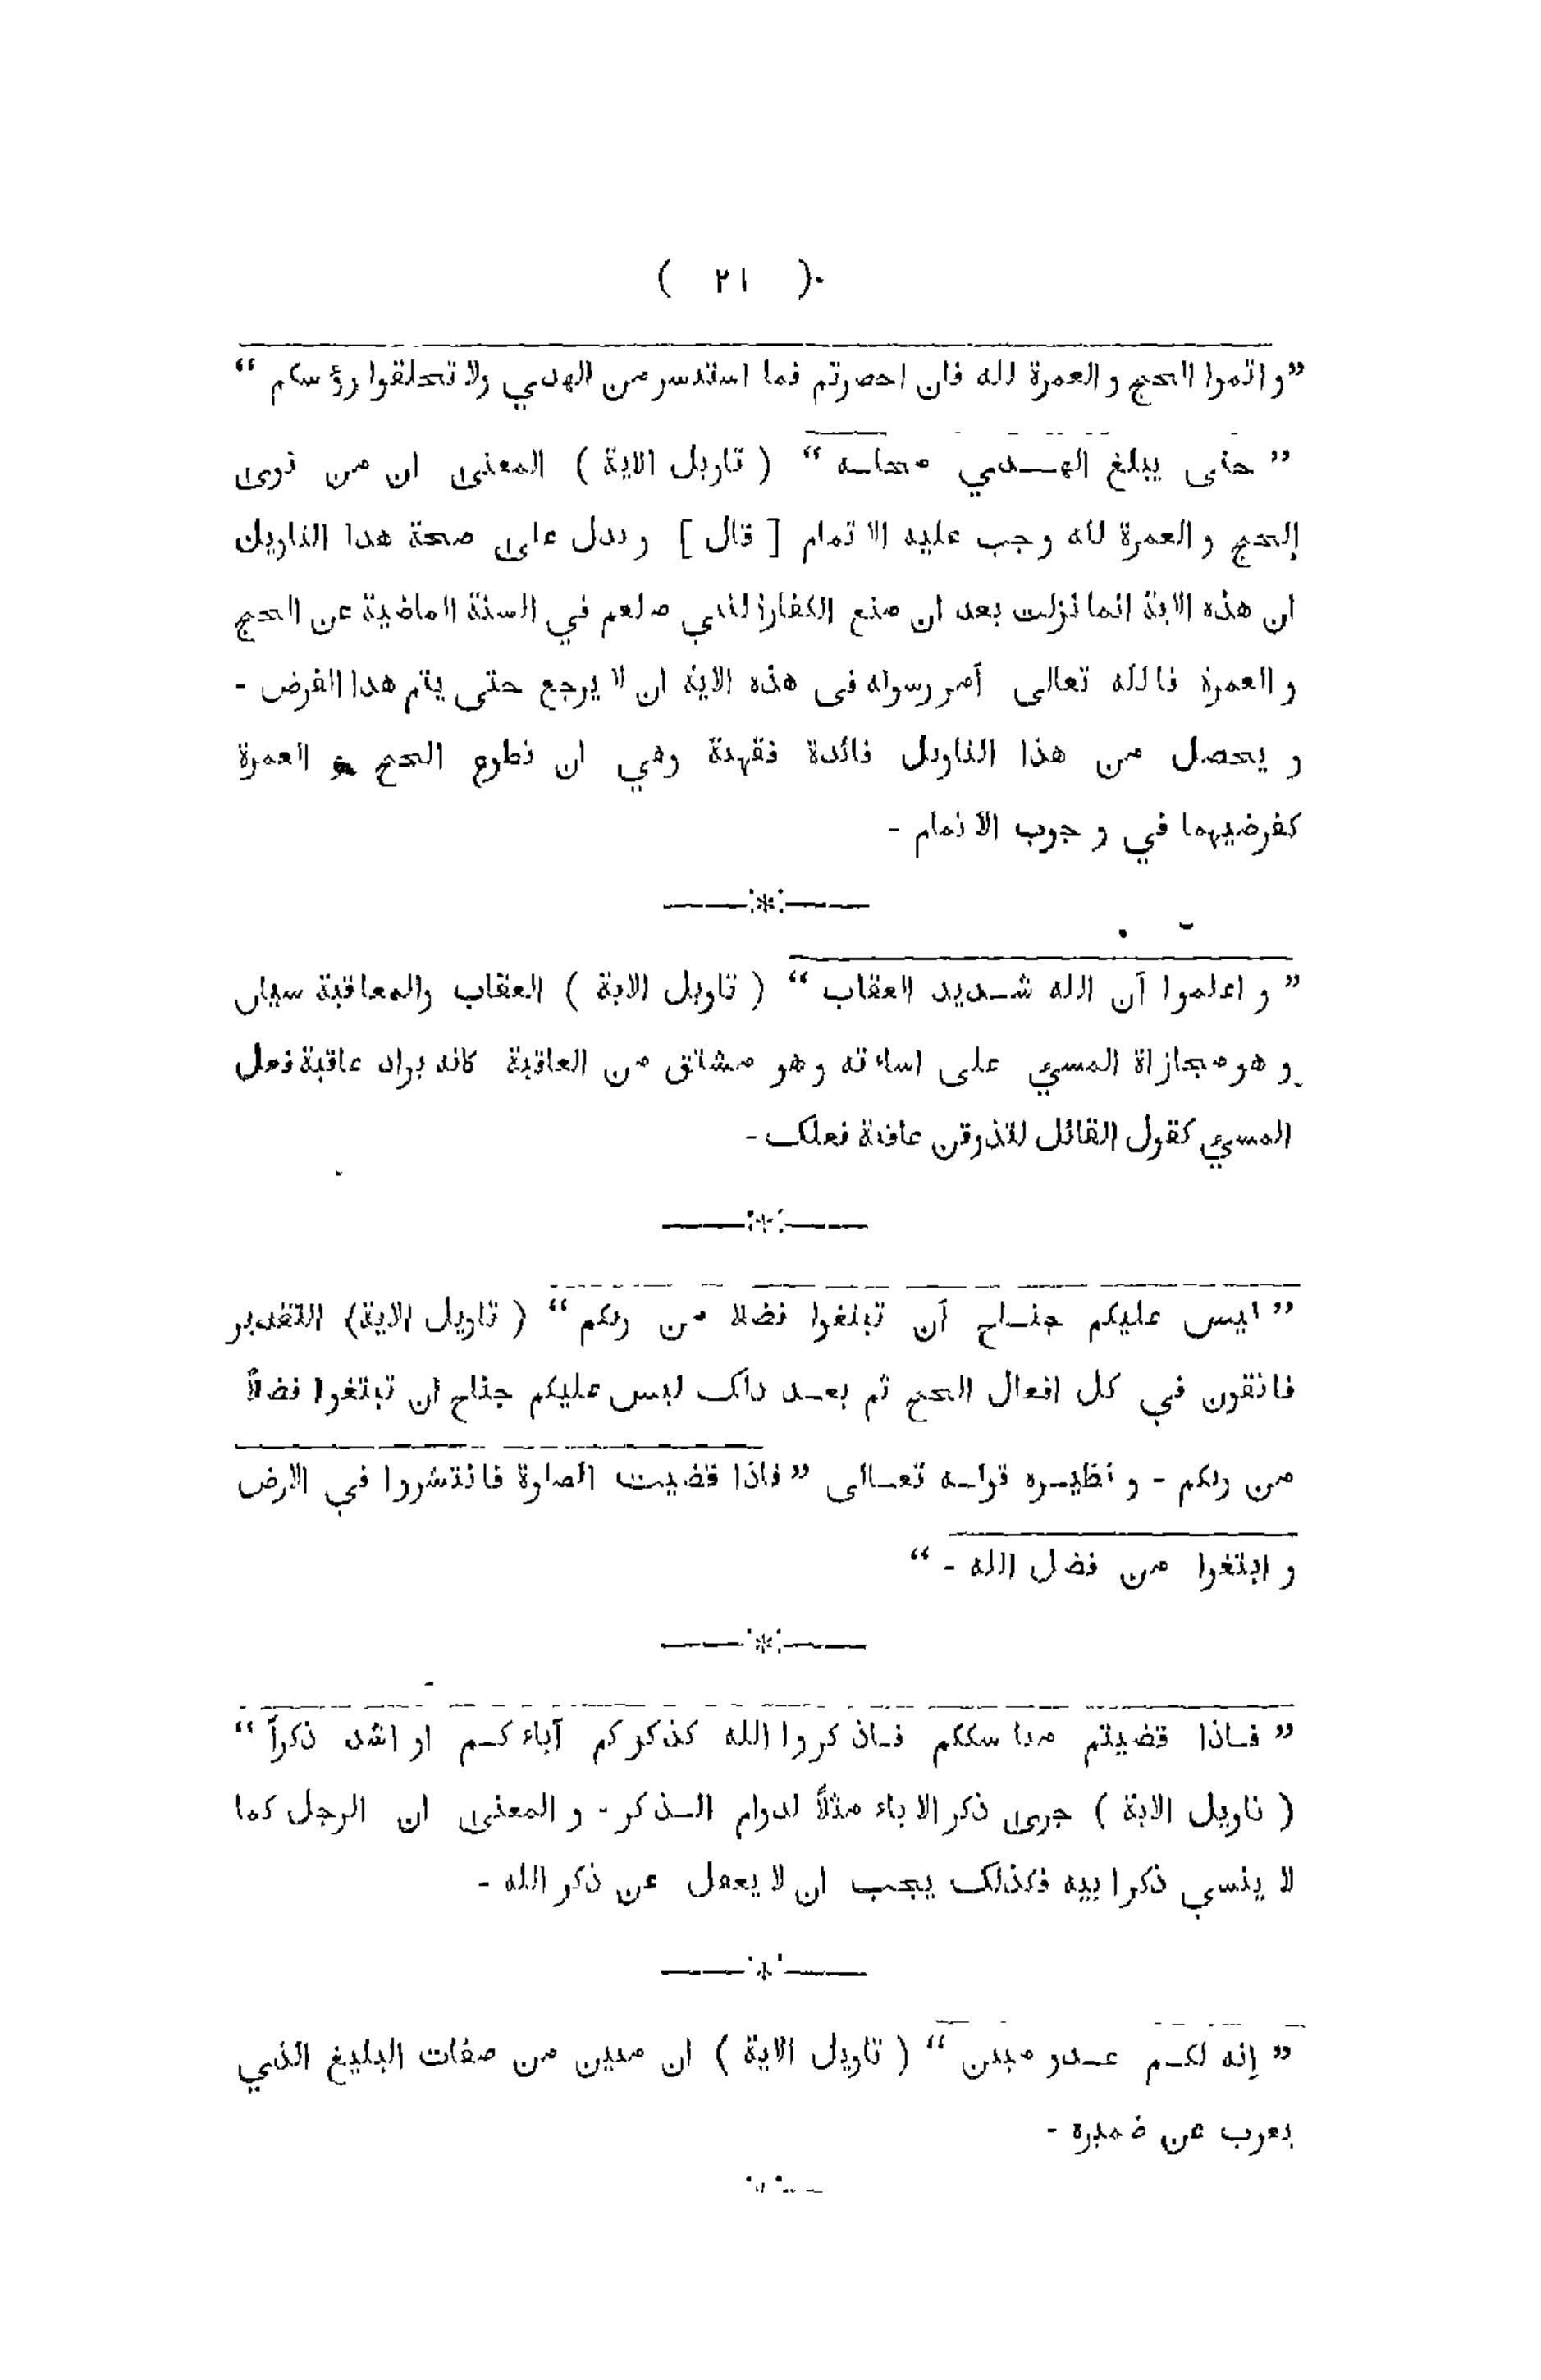 ( ٢١ )
”و اتموا الحج و العمرة لله فان احصرتم فما استيسر من الهدي ولا تحلقوا رؤسكم “
” حتى يبلغ الهــدي محلــه “ ( تاويل الاية ) المعنى ان من نوى
الحج و العمرة لله وجب عليه الاتمام [ قال ] و يدل على صحة هذا التاويل
ان هذه الاية انما نزلت بعد ان منع الكفار النبي صلعم في السنة الماضية عن الحج
و العمرة فالله تعالى أمر رسوله فى هذه الاية ان لا يرجع حتى يتم هذا الفرض -
و يحصل من هذا التاويل فائدة فقهية وهي ان تطوع الحج و العمرة
كفرضيهما في وجوب الاتمام -
——:*:——
” و اعلموا أن الله شــديد العقاب “ ( تاويل الاية ) العقاب والمعاقبة سيان
و هو مجازاة المسي على اساءته وهو مشتق من العاقبة كانه يراد عاقبة فعل
المسي كقول القائل لتذوقن عاقبة فعلك -
——:*:——
” ليس عليكم جنــاح أن تبتغوا فضلا من ربكم “ ( تاويل الاية) التقدير
فاتقون في كل افعال الحج ثم بعــد ذلك ليس عليكم جناح ان تبتغوا فضلاً
من ربكم - و نظيــره قولــه تعــالى ” فاذا قضيت الصلوة فانتشروا في الارض
و ابتغوا من فضل الله - “
——:*:——
” فــاذا قضيتم مناسككم فــاذكروا الله كذكركم آباءكــم او اشد ذكراً “
( تاويل الاية ) جرى ذكر الاباء مثلاً لدوام الــذكر - و المعنى ان الرجل كما
لا ينسي ذكر ابيه فكذلك يجب ان لا يغفل عن ذكر الله -
——:*:——
” إنه لكــم عــدو مبين “ ( تاويل الاية ) ان مبين من صفات البليغ الذي
يعرب عن ضميره -